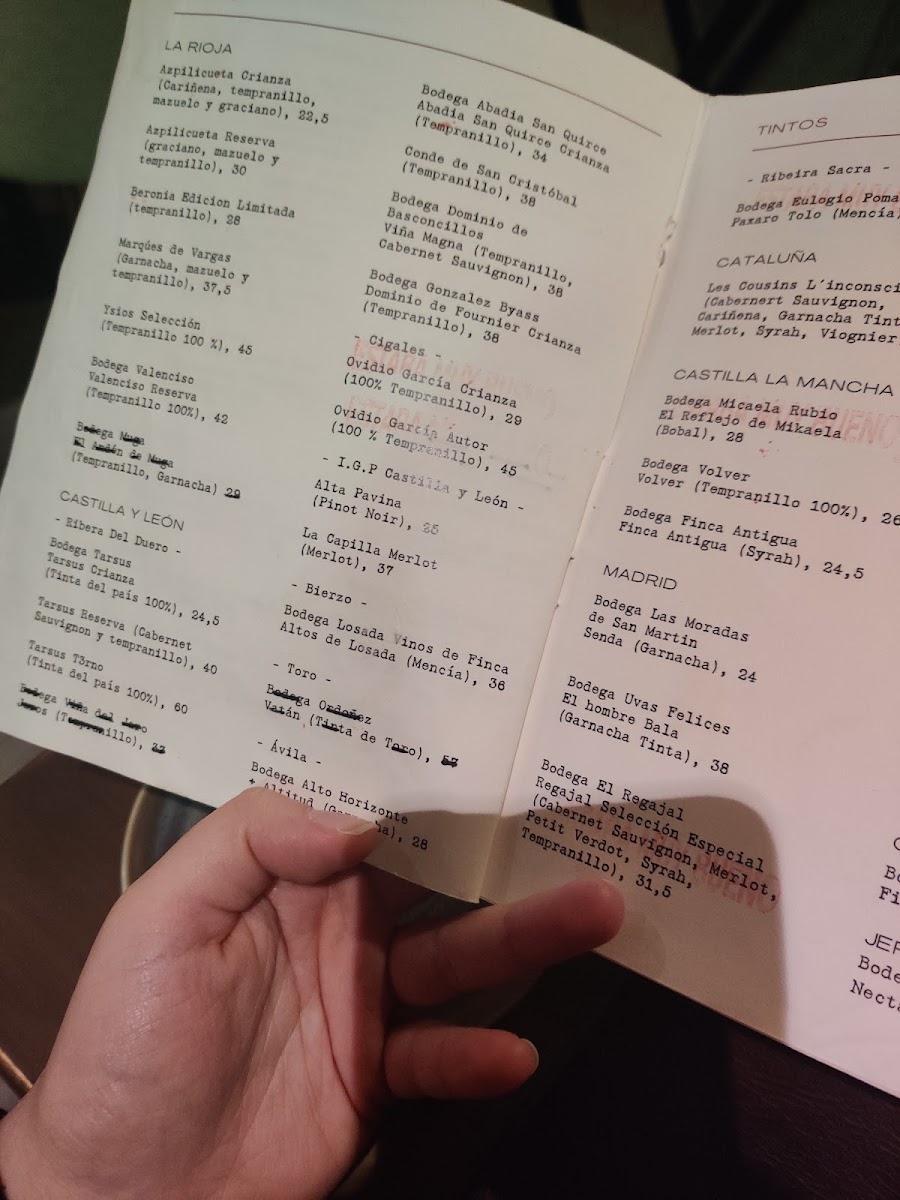 LA RIOJA
Azpilicueta Crianza
(Cariñena, tempranillo,
mazuelo y graciano), 22,5
Azpilicueta Reserva
(graciano, mazuelo y
tempranillo), 30
Beronia Edicion Limitada
(tempranillo), 28
Marqúes de Vargas
(Garnacha, mazuelo y
tempranillo), 37,5
Ysios Selección
(Tempranillo 100 %), 45
Bodega Valenciso
Valenciso Reserva
(Tempranillo 100%), 42
Bodega Muga
El Andén de Muga
(Tempranillo, Garnacha) 29
CASTILLA Y LEÓN
- Ribera Del Duero -
Bodega Tarsus
Tarsus Crianza
(Tinta del país 100%), 24,5
Tarsus Reserva (Cabernet
Sauvignon y tempranillo), 40
Tarsus T3rno
(Tinta del país 100%), 60
Bodega Viña del
(Tempranillo),
Bodega Abadia San Quirce
Abadia San Quirce Crianza
(Tempranillo), 34
Conde de San Cristóbal
(Tempranillo), 38
Bodega Dominio de
Basconcillos
Viña Magna (Tempranillo,
Cabernet Sauvignon), 38
Bodega Gonzalez Byass
Dominio de Fournier Crianza
(Tempranillo), 38
- Cigales -
Ovidio García Crianza
(100% Tempranillo), 29
Ovidio García Autor
(100 % Tempranillo), 45
- I.G.P Castilla y León -
Alta Pavina
(Pinot Noir), 25
La Capilla Merlot
(Merlot), 37
- Bierzo -
Bodega Losada Vinos de Finca
Altos de Losada (Mencía), 36
- Toro -
Bodega Ordoñez
Vatán (Tinta de Toro),
- Ávila -
Bodega Alto Horizonte
+ Altitud 28
TINTOS
- Ribeira Sacra -
Bodega Eulogio Poma
Paxaro Tolo (Mencía)
CATALUÑA
Les Cousins L'inconsci
(Cabernert Sauvignon,
Cariñena, Garnacha Tint
Merlot, Syrah, Viognier
CASTILLA LA MANCHA
Bodega Micaela Rubio
El Reflejo de Mikaela
(Bobal), 28
Bodega Volver
Volver (Tempranillo 100%), 26
Bodega Finca Antigua
Finca Antigua (Syrah), 24,5
MADRID
Bodega Las Moradas
de San Martín
Senda (Garnacha), 24
Bodega Uvas Felices
El hombre Bala
(Garnacha Tinta), 38
Bodega El Regajal
Regajal Selección Especial
(Cabernet Sauvignon, Merlot,
Petit Verdot, Syrah,
Tempranillo), 31,5
JE
Bode
Necta